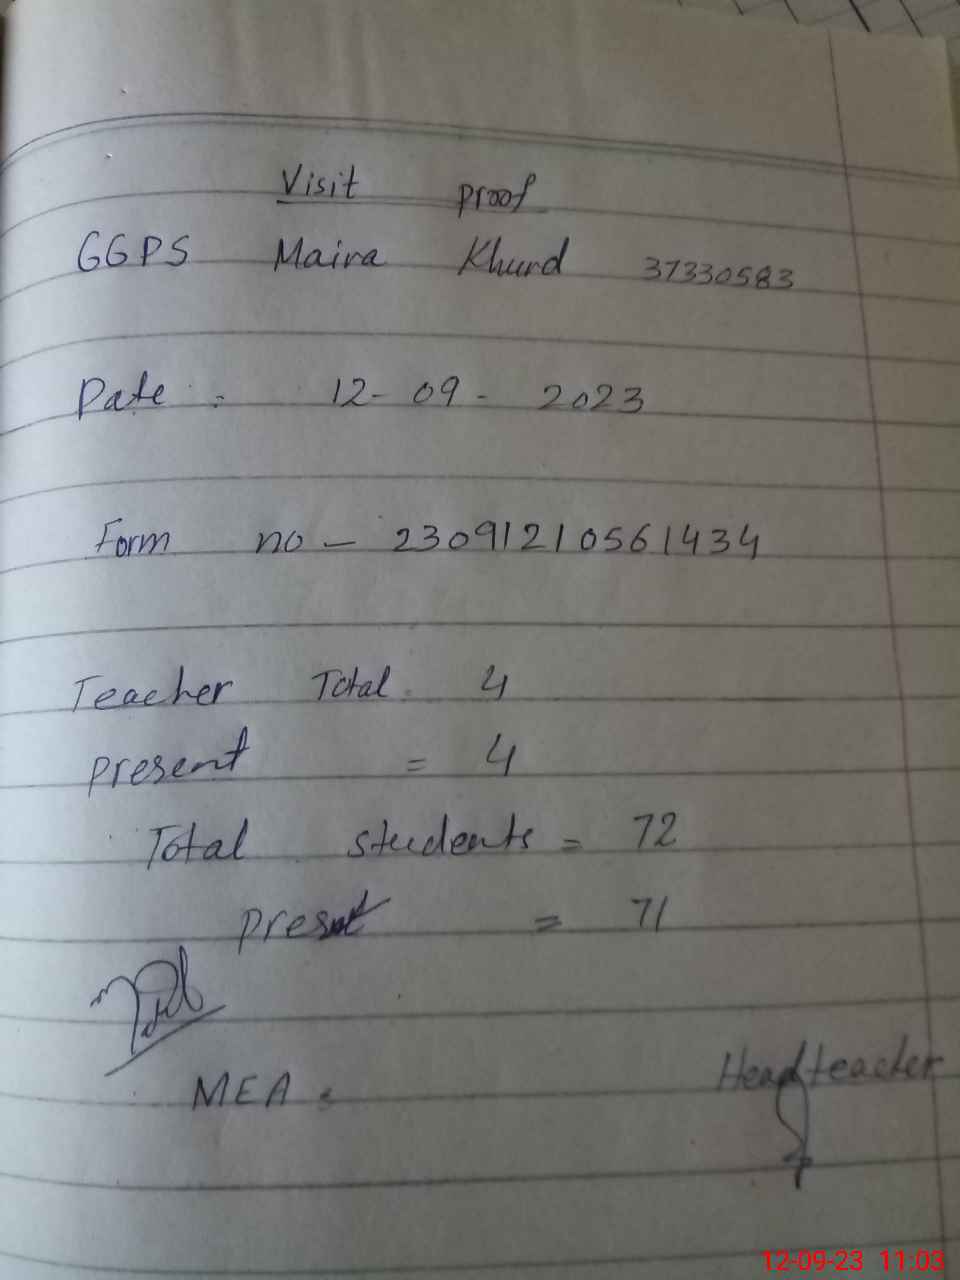 Visit proof
GGPS Maira Khurd 37330583
Date : 12-09-2023
Form no - 23091210561434
Teacher Total 4
present = 4
Total students = 72
present = 71
MEA :
Headteacher
12-09-23 11:03